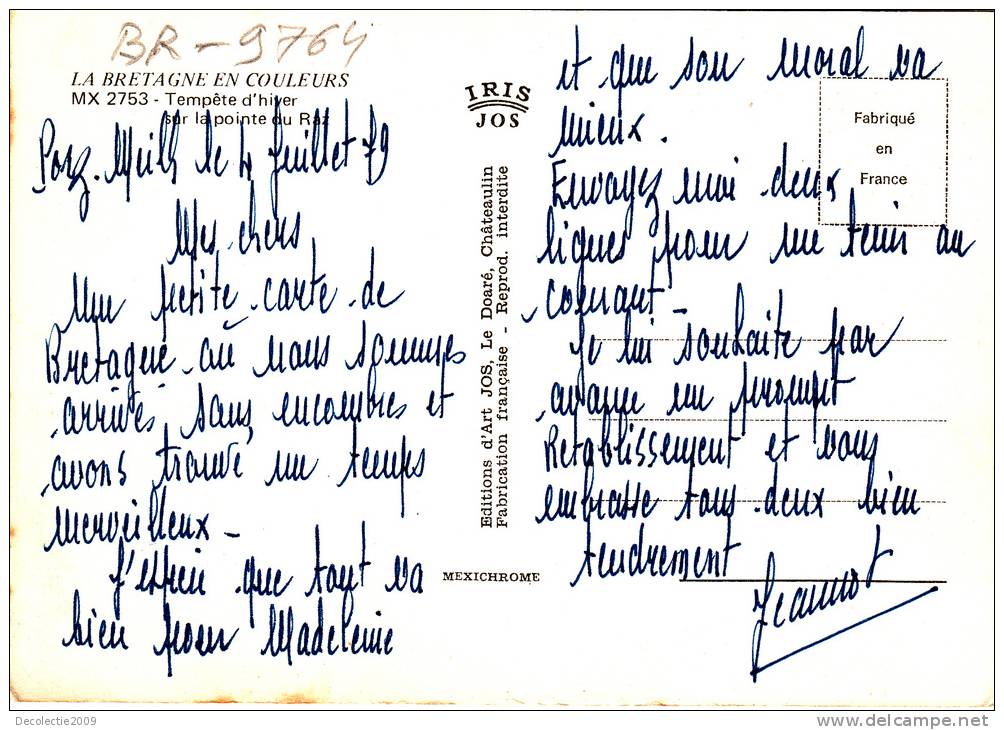 BR - 9764
LA BRETAGNE EN COULEURS
MX 2753 - Tempête d'hiver
sur la pointe du Raz
le 4 Juillet 79
Mes chers
Une petite carte de
Bretagne où nous sommes
arrivés sans encombres et
avons trouvé un temps
merveilleux -
J'espère que tout va
bien pour Madeleine
IRIS
JOS
Editions d'Art JOS, Le Doaré, Châteaulin
Fabrication française - Reprod. interdite
MEXICHROME
et que son moral va
mieux.
Envoyez moi deux
lignes pour me tenir au
courant -
Je lui souhaite par
avance un prompt
Retablissement et vous
embrasse tous deux bien
tendrement
Jeannot
Fabriqué
en
France
Decolectie2009
delcampe.net